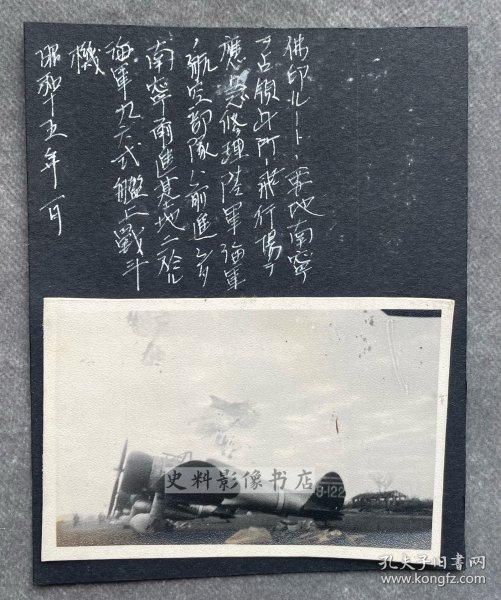 佛印ルート、要地南寧
ヲ占領シ所、飛行場ヲ
應急修理陸軍海軍
ノ航空部隊ハ前進シ
南寧前進基地ニ於ル
海軍九六式艦上戦斗
機
昭和十五年一月
9-122
史料影像书店
孔夫子旧书网
www.kongfz.com